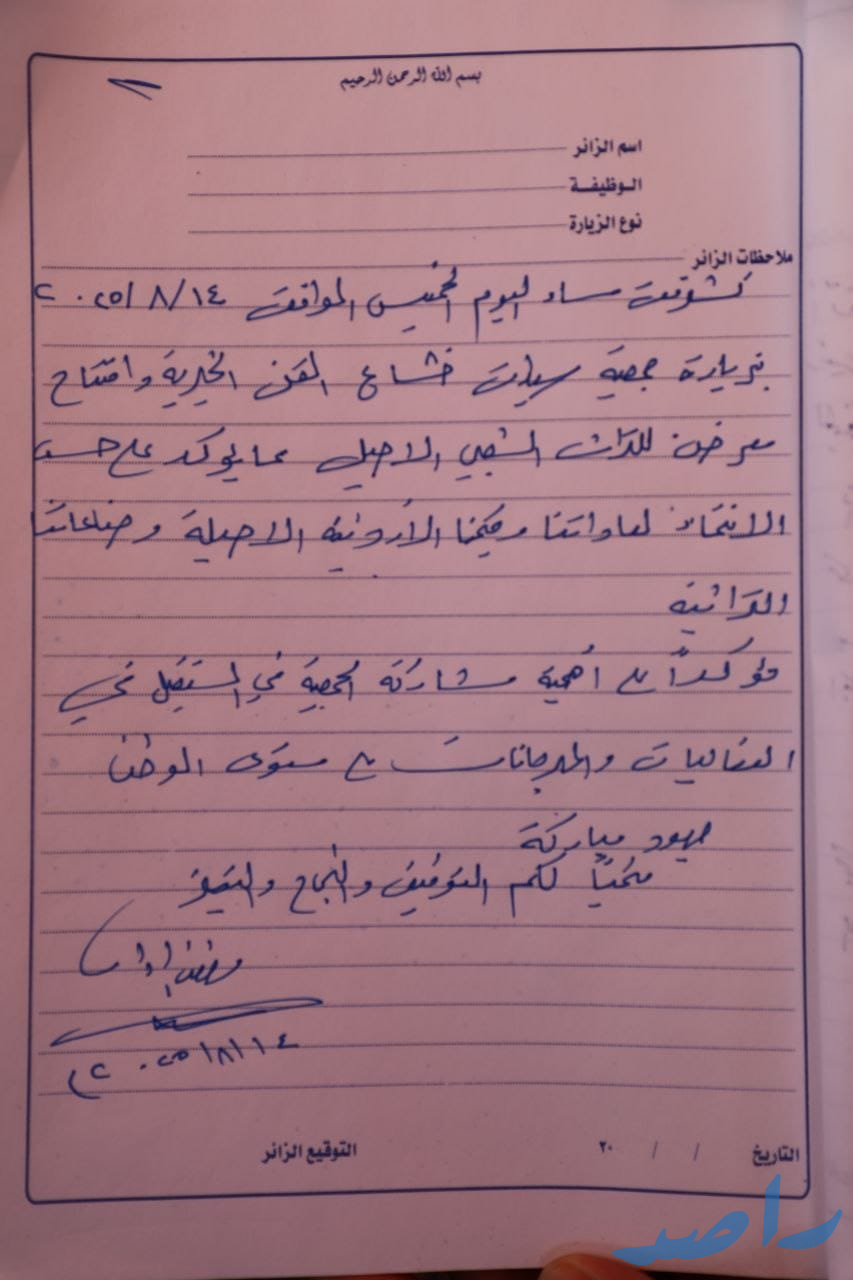 بسم الله الرحمن الرحيم
اسم الزائر
الوظيفة
نوع الزيارة
ملاحظات الزائر
تشرفت مساء اليوم الخميس الموافق ٢٠٢٥/٨/١٤
بزيارة جمعية سيدات خشاع القن الخيرية وافتتاح
معرض للتراث الشعبي الاصيل مما يؤكد على حسن
الانتماء لعاداتنا وقيمنا الأردنية الاصيلة وصناعاتنا
التراثية
مؤكداً على أهمية مشاركة الجمعية في المستقبل في
الفعاليات والمهرجانات على مستوى الوطن
جهود مباركة
متمنياً لكم التوفيق والنجاح والتميز
٢٠٢٥/٨/١٤
التاريخ / / ٢٠
التوقيع الزائر
راصد